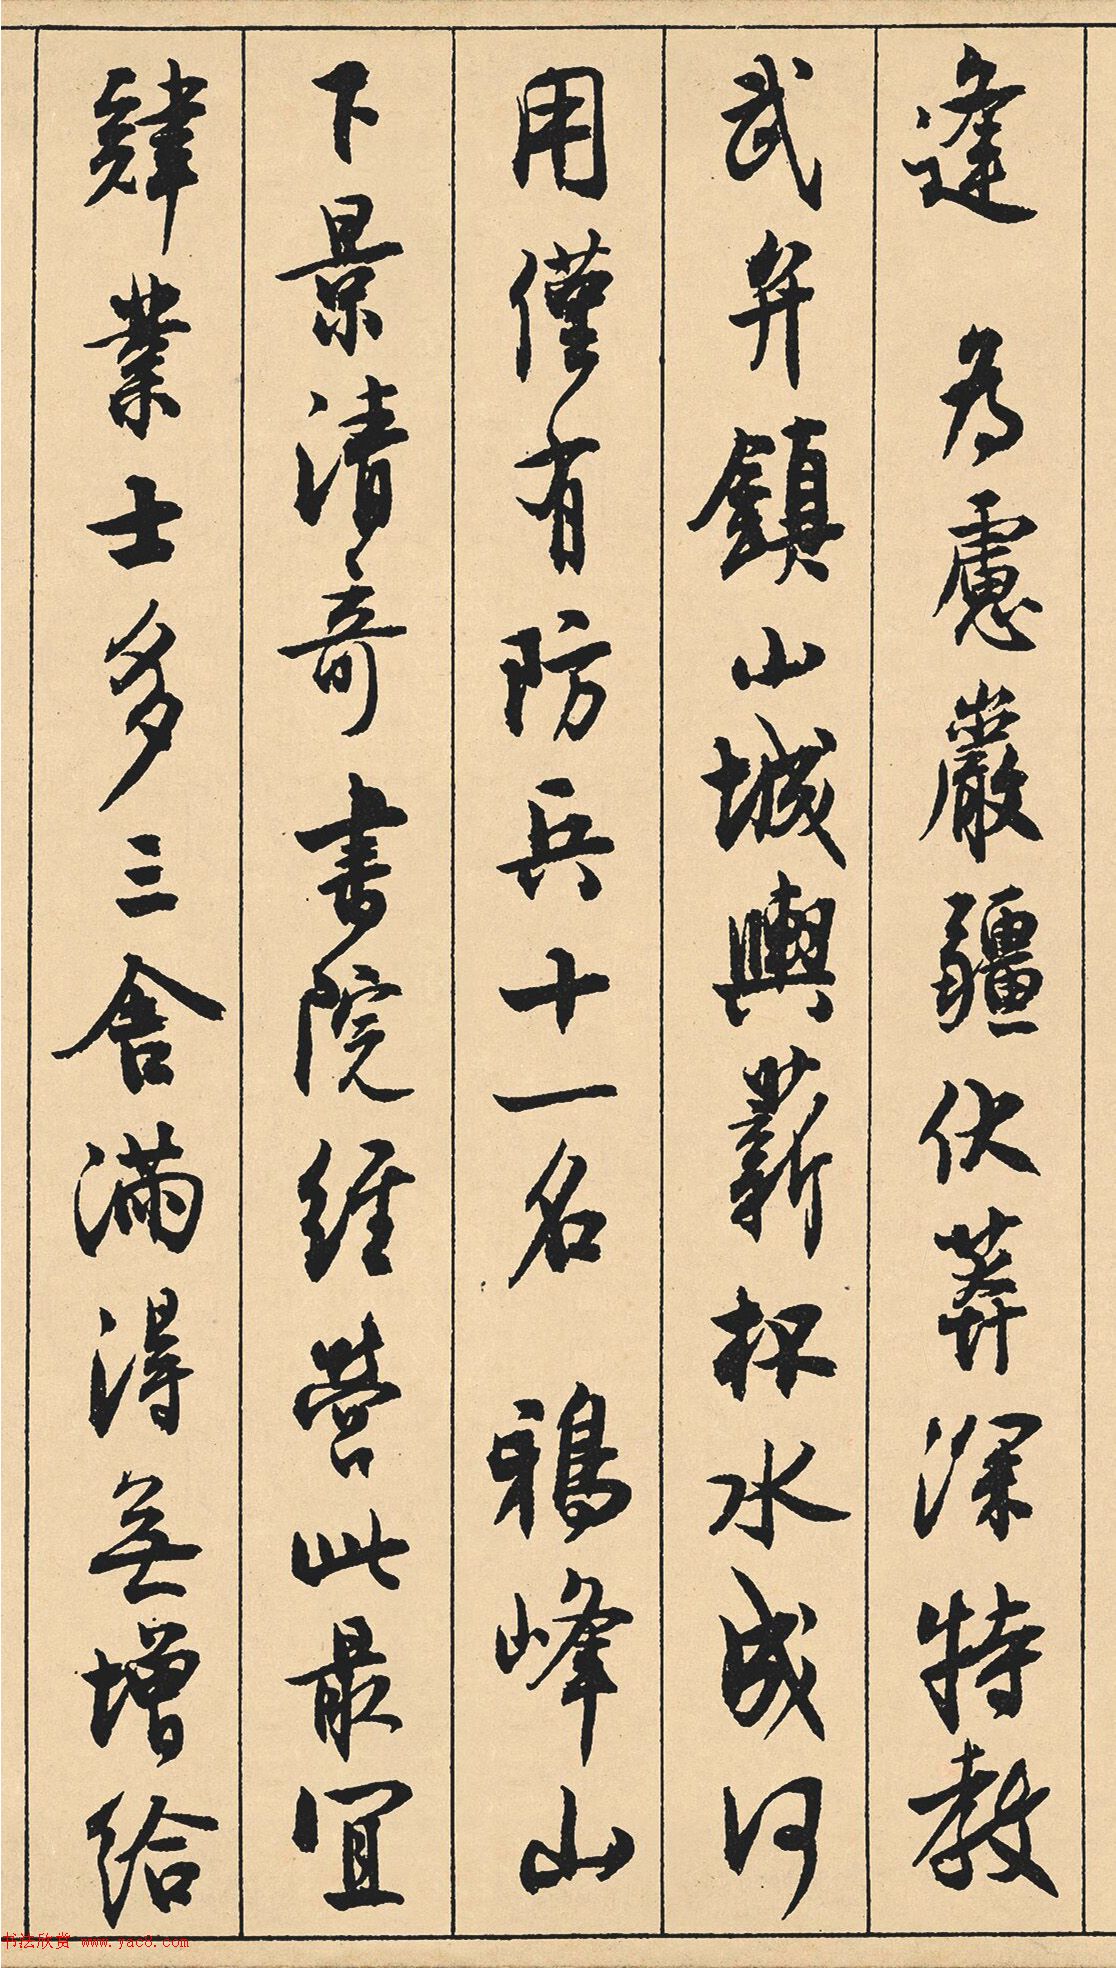 逢 為慮巖疆伏莽深特教
武弁鎮山城輿薪杯水成何
用僅有防兵十一名 鵶峰山
下景清奇書院經營此最宜
肄業士多三舍滿得無增給
书法欣赏 www.yac8.com